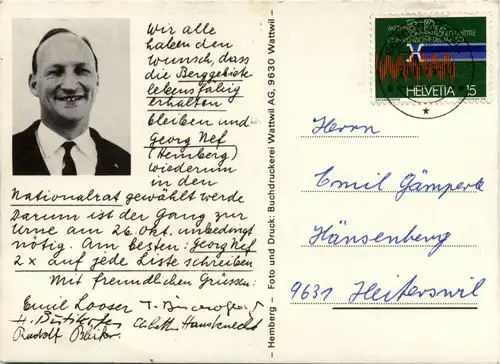 Wir alle
haben den
Wunsch, dass
die Berggebiete
lebensfähig
erhalten
bleiben und
Georg Nef
(Hemberg)
wiederum
in den
Nationalrat gewählt werde
Darum ist der Gang zur
Urne am 26. Okt. unbedingt
nötig. Am besten: Georg Nef
2x auf jede Liste schreiben
Mit freundlichen Grüssen:
Emil Looser
Hausknecht
Rudolf
Hemberg – Foto und Druck: Buchdruckerei Wattwil AG, 9630 Wattwil –
HELVETIA 15
Herrn
Emil Gämperle
Hänsenberg
9631 Heiterswil